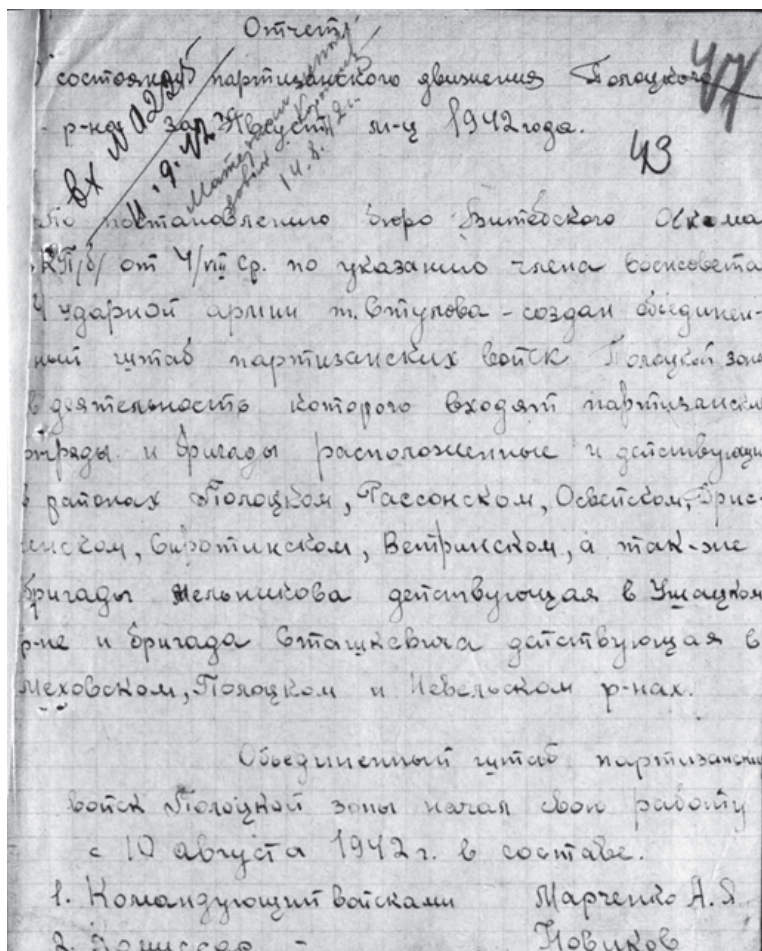 Отчет
состоянии партизанского движения Полоцкого
р-на за Август м-ц 1942 года.
Вх N 0225
11.9.42
14.8.42 г.
47
43
По постановлению бюро Витебского Обкома
КП/б/ от 4/VIII ср. по указанию члена военсовета
4 ударной армии т. Стулова - создан объединен-
ный штаб партизанских войск Полоцкой зоны
в деятельность которого входят партизански
отряды и бригады расположенные и действующи
в районах Полоцком, Рассонском, Освейском, Дрис-
сенском, Сиротинском, Ветринском, а так-же
бригады Мельникова действующая в Ушацком
р-не и бригада Сташкевича действующая в
Меховском, Полоцком и Невельском р-нах.
Объединенный штаб партизански
войск Полоцкой зоны начал свою работу
с 10 августа 1942 г. в составе.
1. Командующий войсками Марченко А.Я.
2. Комиссар - Новиков